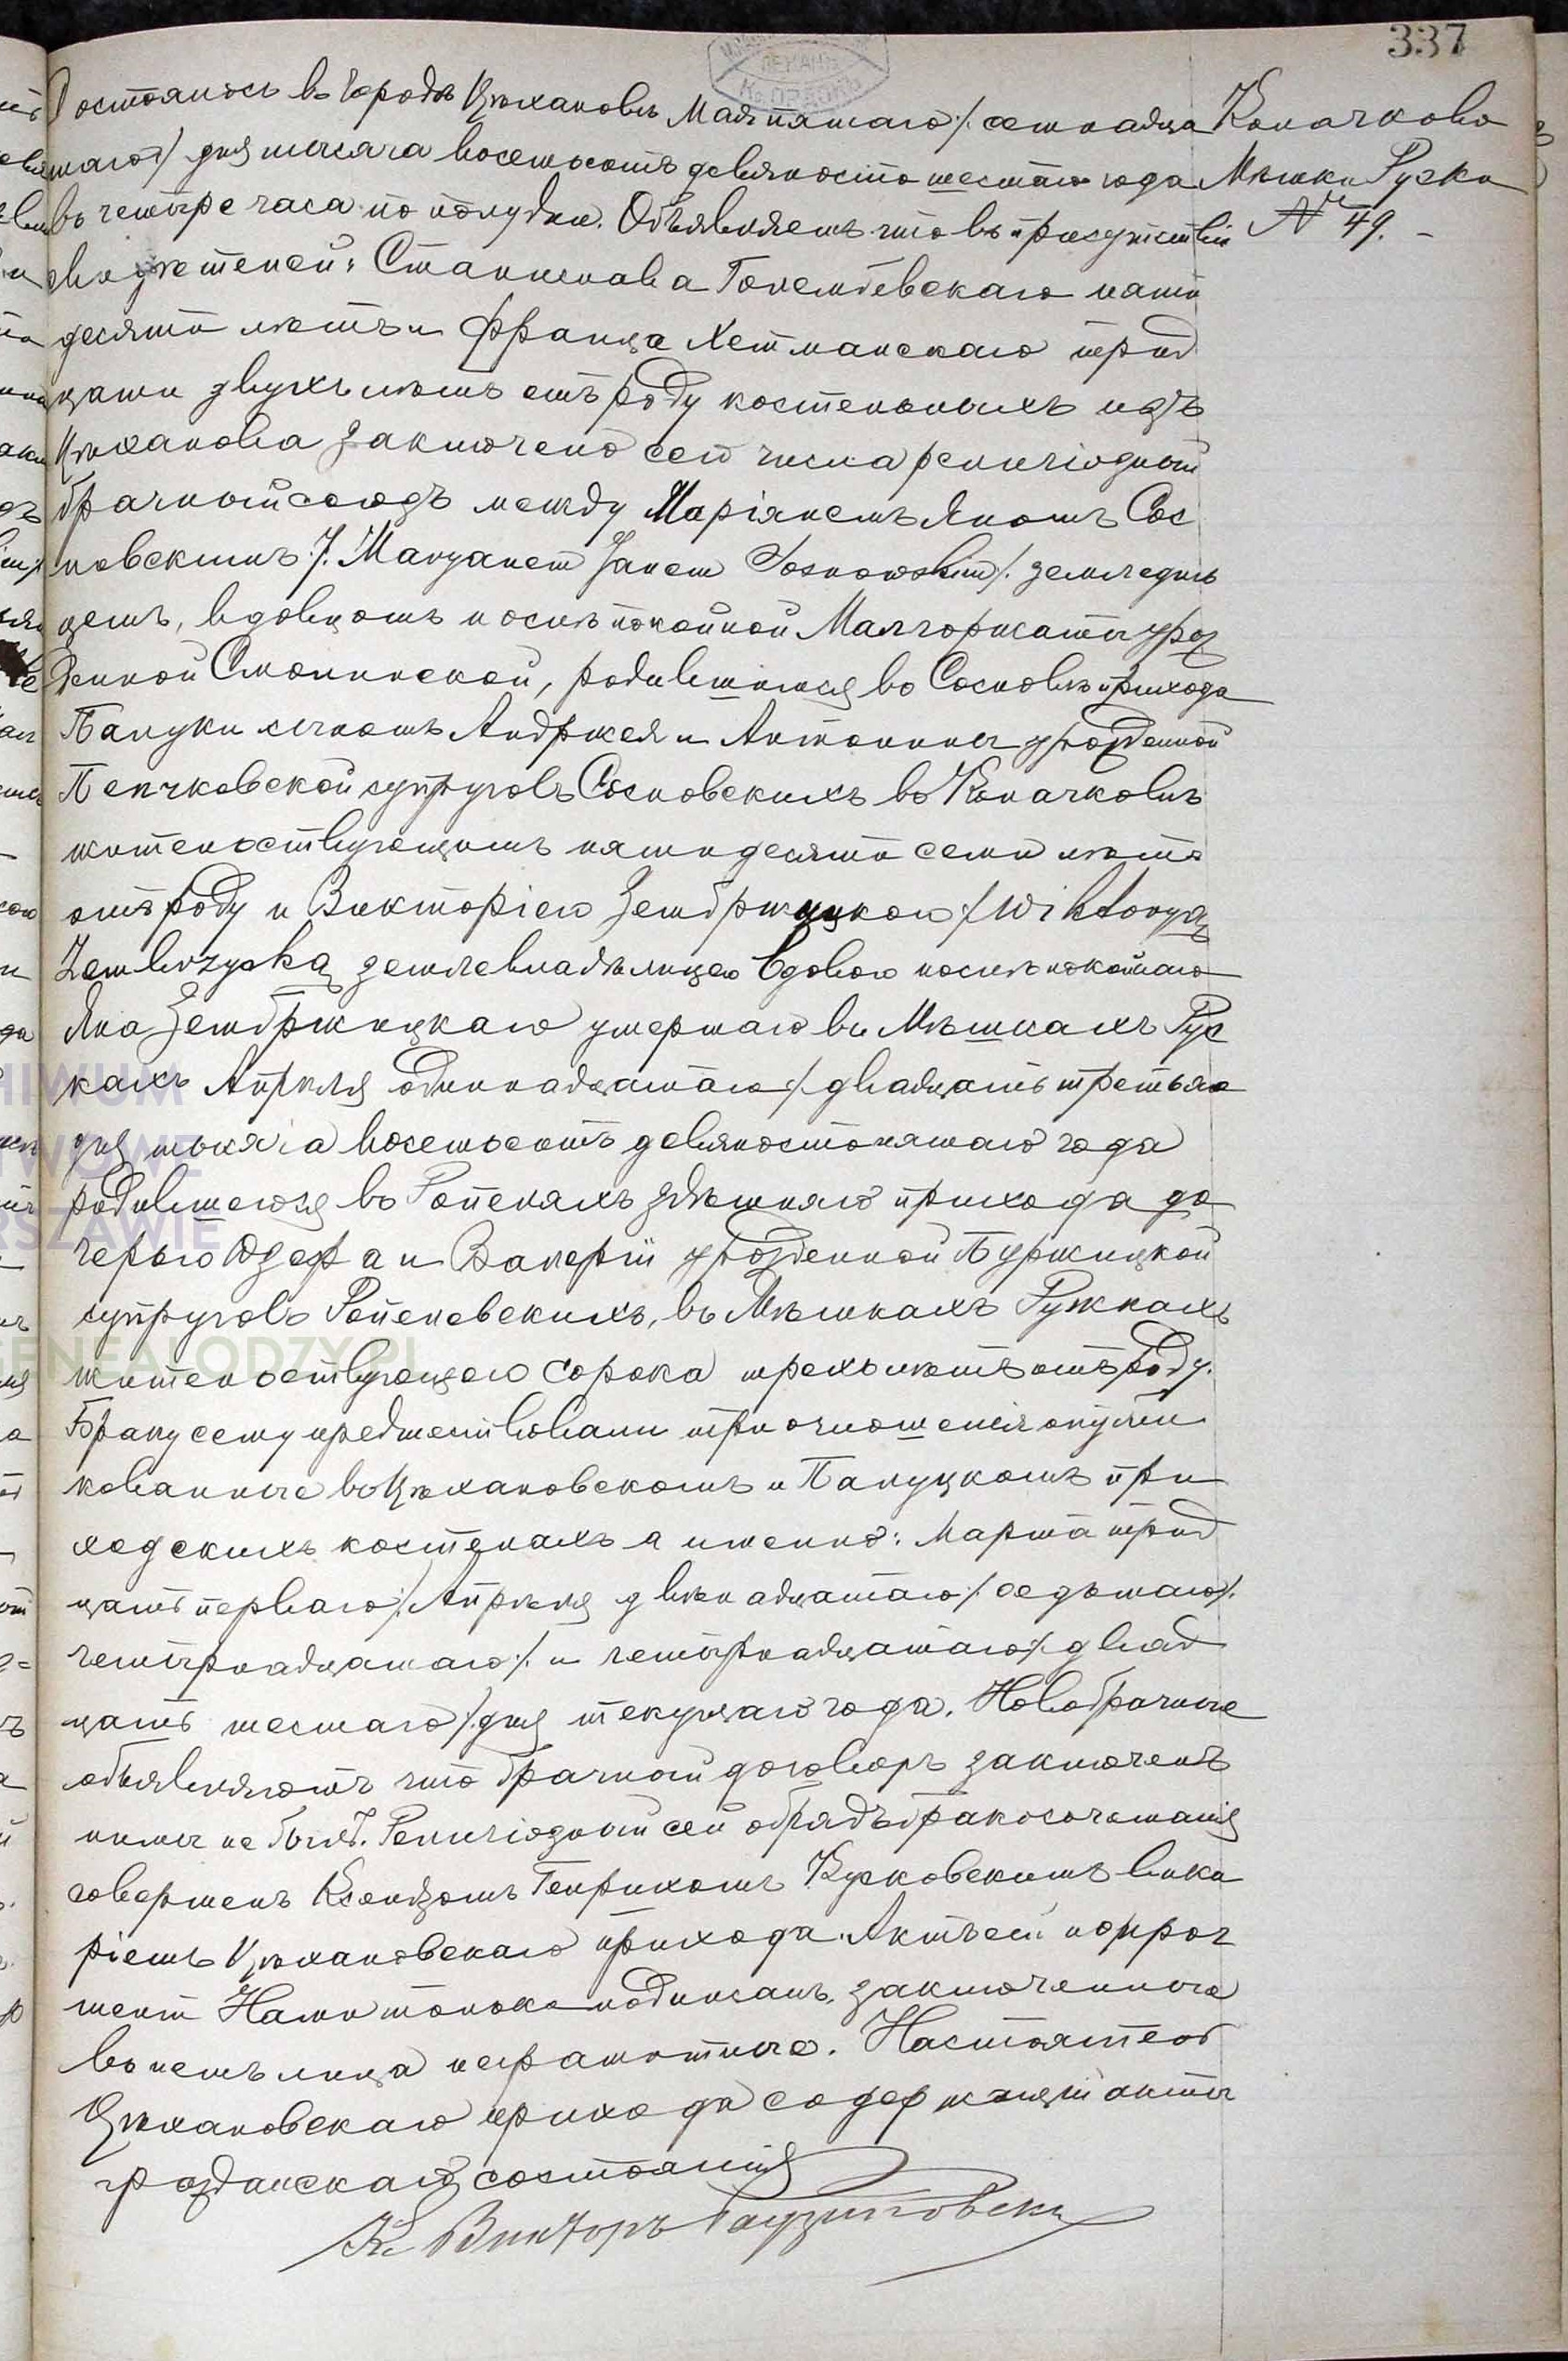 337
Коначково
Мѣшки Руски
№ 49. -
Состоялось въ Городѣ Цѣхановѣ Мая пятаго /. семнадца
таго / дня тысяча восемьсотъ девяносто шестаго года
въ четыре часа по полудни. Объявляемъ что въ присутствіи
свидѣтелей: Станислава Голембевскаго пяти
десяти лѣтъ и Франца Хетманскаго трид
цати двухъ лѣтъ отъ роду костельныхъ изъ
Цѣханова заключенъ сего числа религіозный
брачный союзъ между Маріяномъ Яномъ Сос
новскимъ /. Maryanem Janem Sosnowskim /. земледѣль
цемъ, вдовцомъ послѣ покойной Малгоржаты урож
денной Смолинской, родившимся въ Сосновѣ прихода
Палуки сыномъ Андржея и Антонины урожденной
Пенчковской супруговъ Сосновскихъ въ Коначковѣ
жительствующимъ пятидесяти семи лѣтъ
отъ роду и Викторіею Зембржуцкою / Wiktoryą
Zembrzycką землевладѣлицею вдовою послѣ покойнаго
Яна Зембржицкаго умершаго въ Мѣшкахъ Рус
кахъ Апрѣля одиннадцатаго /. двадцать третьяго
дня тысяча восемьсотъ девяностопятаго года
родившеюся въ Ропеляхъ здѣшняго прихода до
черью Юзефа и Валеріи урожденной Буржицкой
супруговъ Ропелевскихъ, въ Мѣшкахъ Ружкахъ
жительствующею сорока трехъ лѣтъ отъ роду.
Браку сему предшествовали три оглашенія опубли
кованные въ Цѣхановскомъ и Палуцкомъ при
ходскихъ костелахъ а именно: Марта трид
цать перваго /. Апрѣля двѣнадцатаго /. седьмаго /.
четырнадцатаго /. и четырнадцатаго /. двад
цать шестаго /. дня текущаго года. Новобрачные
объявляютъ что брачный договоръ заключенъ
ними не былъ. Религіозный сей обрядъ бракосочетанія
совершенъ Ксендзомъ Генрихомъ Курковскимъ вика
ріемъ Цѣхановскаго прихода. Актъ сей по проч
теніи Нами только подписанъ, заключенные
въ немъ лица неграмотные. Настоятель
Цѣхановскаго прихода содержащій акты
гражданскаго состоянія
Кс. Викторъ